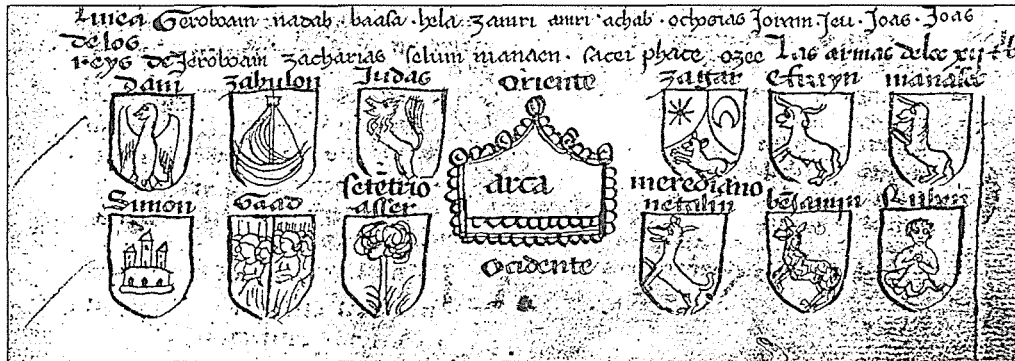 linea Geroboam · nadab · baasa · hela · zamri amri · achab · ochosias Joram Jeu · Joas · Joas
de los
reys de Jeroboam zacharias selum manaen · facei phace ozee Las armas delos xij
Dam zabulon Judas Oriente zachar efrayn manase
arca
Simon Gaad setētrio asser merediano netalin bējamin Rubin
Ocidente